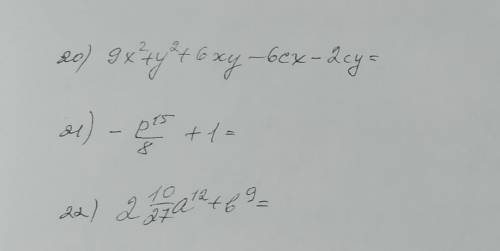 20) 9x²+y²+6xy-6cx-2cy=
21) -p¹⁵/8 +1=
22) 2 10/27 a¹²+b⁹=